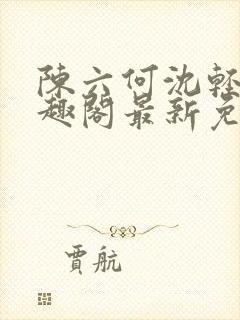 陳六何沈輕
趣閣最新免
賈航